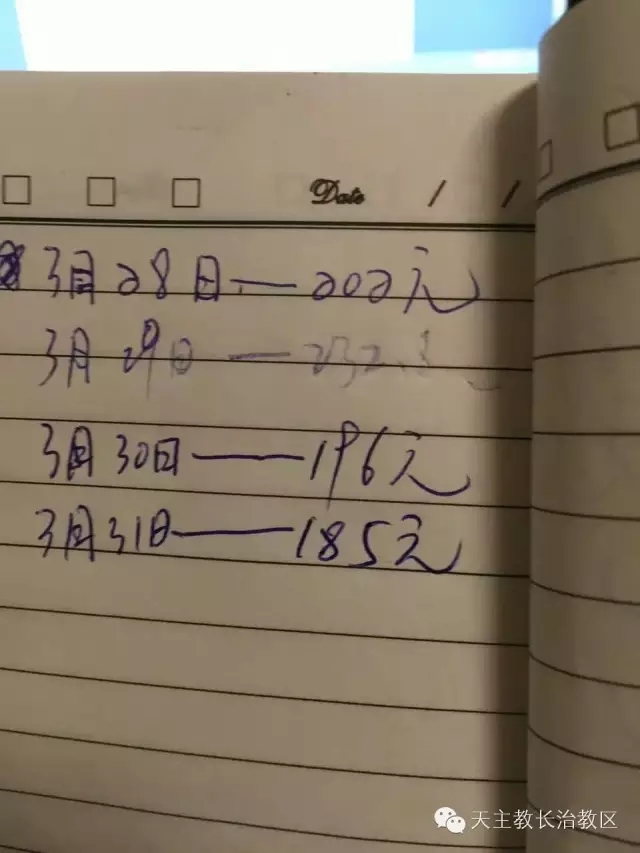 Date / /
3月28日—202元
3月29日—232.
3月30日—196元
3月31日—185元
天主教长治教区